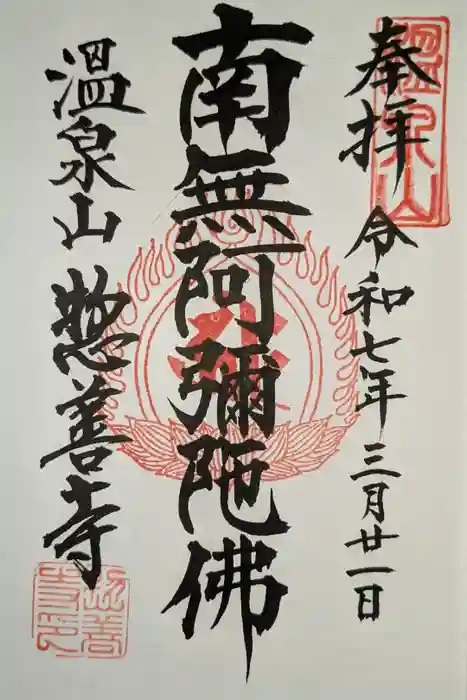 奉拝 令和七年三月廿一日
温泉山
南無阿彌陀佛
温泉山 惣善寺
惣善寺印